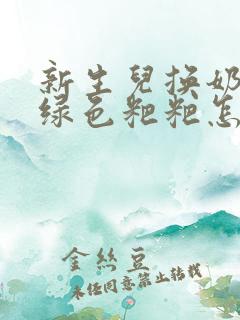 新生兒換奶
綠色粑粑怎
金絲豆
未经同意禁止转载